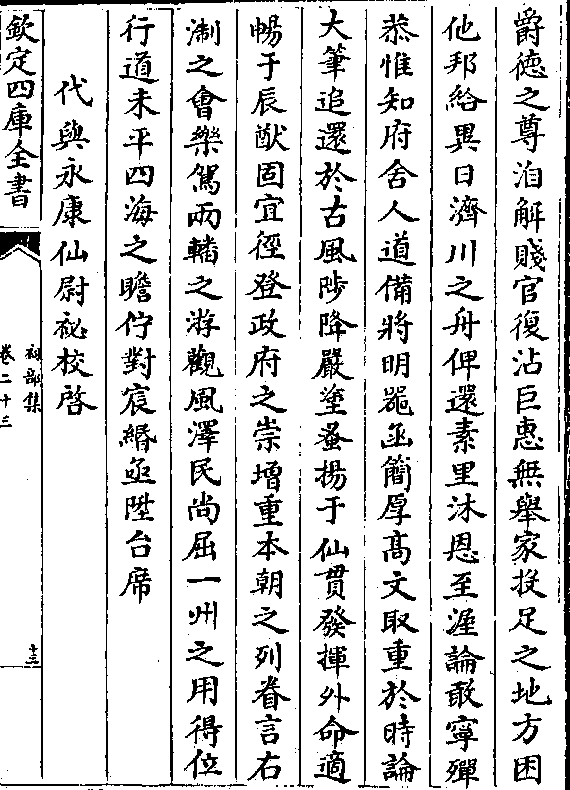 爵徳之尊洎解賤官復沾巨惠無舉家投足之地方困
他邦給異日濟川之舟俾還素里沐恩至渥論敢寧殫
恭惟知府舍人道備將明器函簡厚髙文取重於時論
大筆追還於古風陟降嚴塗蚤揚于仙貫發揮外命適
暢于辰猷固宜徑登政府之崇增重本朝之列眷言右
淛之會樂駕兩轓之游觀風澤民尚屈一州之用得位
行道未平四海之瞻佇對宸緡亟陞台席
代與永康仙尉祕校啓
欽定四庫全書
祠部集
卷二十三
十三